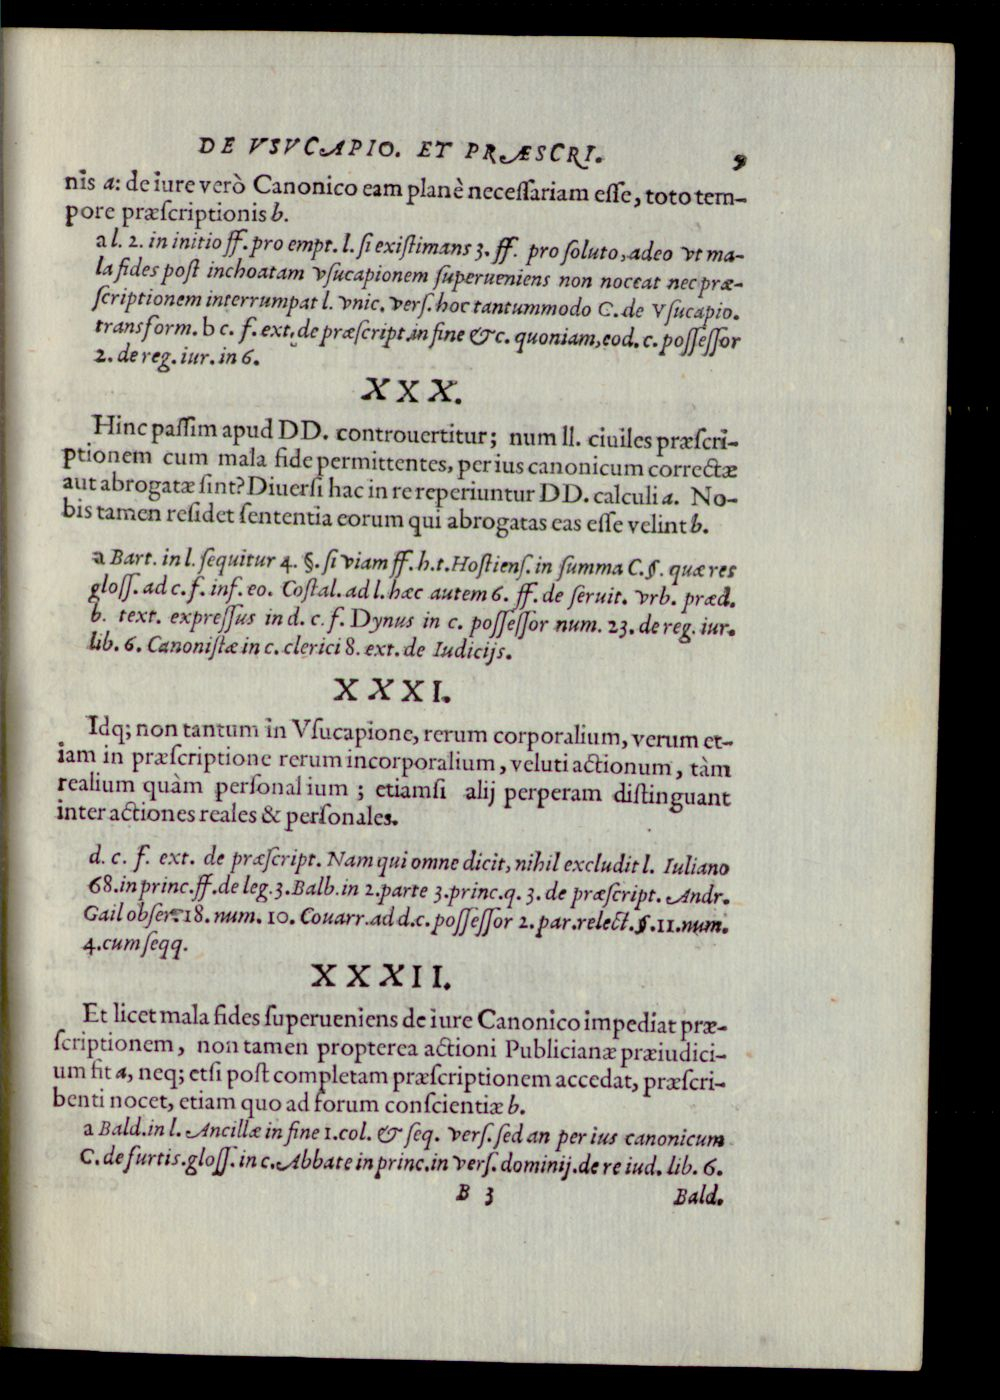 DE VSVCAPIO. ET PRÆSCRI. 9
nis a: de iure verò Canonico eam planè necessariam esse, toto tem-
pore præscriptionis b.
a l. 2. in initio ff. pro empt. l. si existimans 3. ff. pro soluto, adeo vt ma-
la fides post inchoatam vsucapionem superueniens non noceat nec præ-
scriptionem interrumpat l. vnic. vers. hoc tantummodo C. de Vsucapio.
transform. b c. f. ext. de præscript. in fine & c. quoniam, eod. c. possessor
2. de reg. iur. in 6.
XXX.
Hinc passim apud DD. controuertitur; num ll. ciuiles præscri-
ptionem cum mala fide permittentes, per ius canonicum correctæ
aut abrogatæ sint? Diuersi hac in re reperiuntur DD. calculi a. No-
bis tamen residet sententia eorum qui abrogatas eas esse velint b.
a Bart. in l. sequitur 4. §. si viam ff. h. t. Hostiens. in summa C. §. quæ res
gloss. ad c. f. inf. eo. Costal. ad l. hæc autem 6. ff. de seruit. vrb. præd.
b. text. expressus in d. c. f. Dynus in c. possessor num. 23. de reg. iur.
lib. 6. Canonistæ in c. clerici 8. ext. de Iudicijs.
XXXI.
Idq; non tantum in Vsucapione, rerum corporalium, verum et-
iam in præscriptione rerum incorporalium, veluti actionum, tàm
realium quàm personalium ; etiamsi alij perperam distinguant
inter actiones reales & personales.
d. c. f. ext. de præscript. Nam qui omne dicit, nihil excludit l. Iuliano
68. in princ. ff. de leg. 3. Balb. in 2. parte 3. princ. q. 3. de præscript. Andr.
Gail obser. 18. num. 10. Couarr. ad d. c. possessor 2. par. relect. §. 11. num.
4. cum seqq.
XXXII.
Et licet mala fides superueniens de iure Canonico impediat præ-
scriptionem, non tamen propterea actioni Publicianæ præiudici-
um fit a, neq; etsi post completam præscriptionem accedat, præscri-
benti nocet, etiam quo ad forum conscientiæ b.
a Bald. in l. Ancillæ in fine 1. col. & seq. vers. sed an per ius canonicum
C. de furtis. gloss. in c. Abbate in princ. in vers. dominij. de re iud. lib. 6.
B 3 Bald.